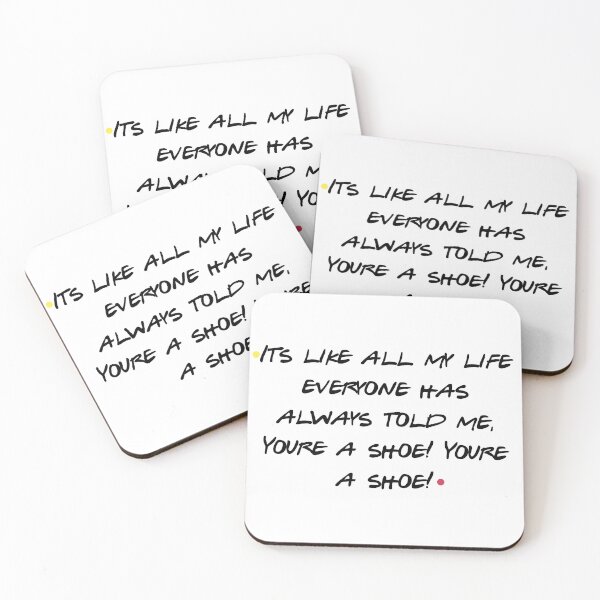 ITS LIKE ALL MY LIFE
EVERYONE HAS
ALWAYS TOLD ME,
ITS LIKE ALL MY LIFE
EVERYONE HAS
ALWAYS TOLD ME,
YOURE A SHOE! YOURE
ITS LIKE ALL MY LIFE
EVERYONE HAS
ALWAYS TOLD ME,
YOURE A SHOE! YOURE
A SHOE
ITS LIKE ALL MY LIFE
EVERYONE HAS
ALWAYS TOLD ME,
YOURE A SHOE! YOURE
A SHOE!